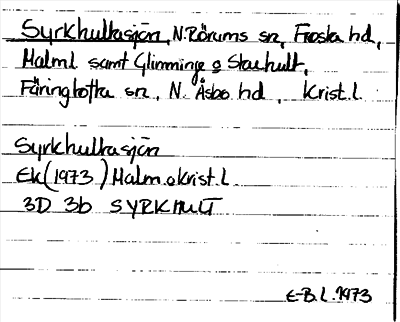 Syrkhultasjön, N. Rörums sn, Frosta hd,
Malml samt Glimminge o Stashult,
Färingtofta sn, N. Åsbo hd, Krist.l
Syrkhultasjön
Ek (1973) Malm.o.krist.l
3D 3b SYRKHULT
E-B.L. 1973